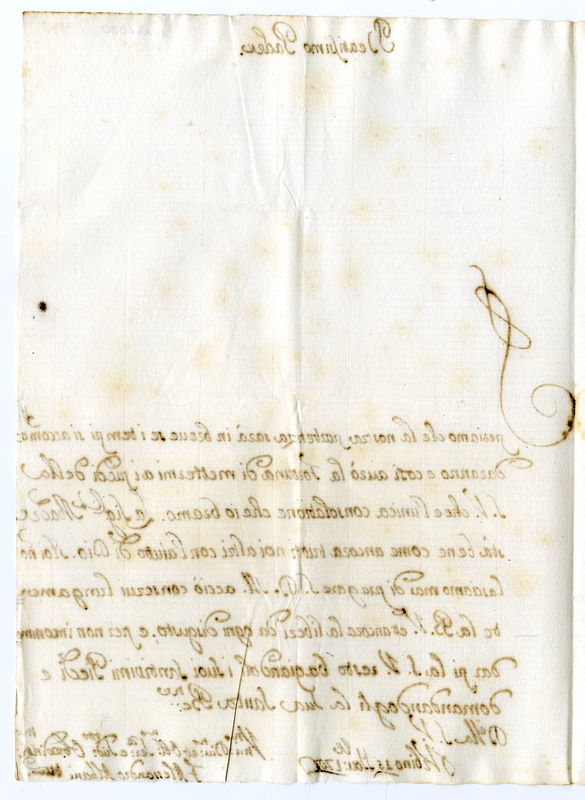 Beatissimo Padre
Speriamo che la nostra partenza sarà in breue se i tempi si accomo:
daranno e così auró la fortuna di mettermi ai piedi della
S. V. che è l'unica consolazione che io bramo. La Sig.ra Madre
stà bene come ancora tutti noi altri con l'aiuto di Dio. Noi nō
lasciamo mai di pregare S. D. M. acciò conserui lungamen
te la B. V. et ancora la liberi da ogni disgusto, e per non incomo
dar più la S. V. resto bagiandoli i suoi Santissimi Piedi e
domandandogli la sua Santa Be:ne
D. Vra S.tà
Vrbino 25
Alessandro Albani